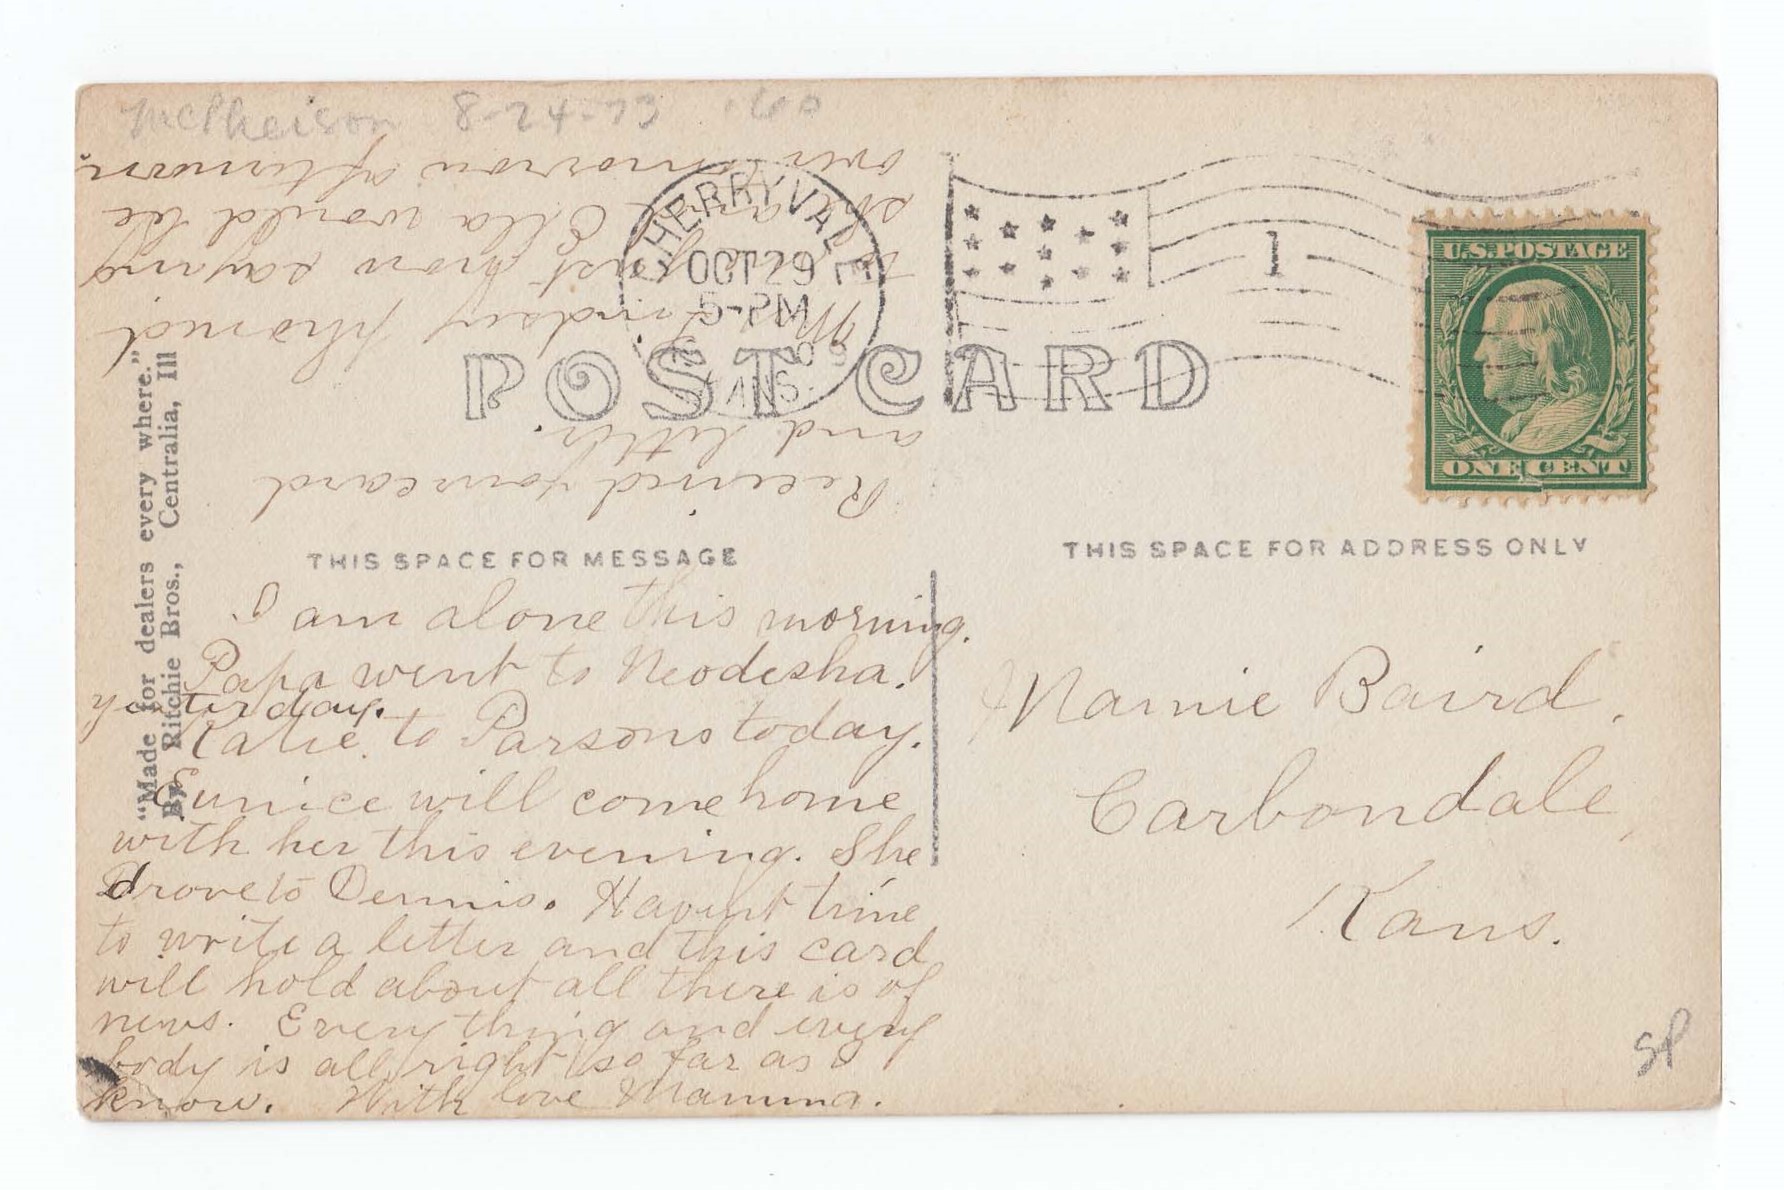 McPheison 8-24-73 .60
CHERRYVALE
OCT 29
5-PM
09
KANS.
1
U.S. POSTAGE
ONE CENT
POST CARD
"Made for dealers every where."
By Ritchie Bros., Centralia, Ill
THIS SPACE FOR MESSAGE
THIS SPACE FOR ADDRESS ONLY
I am alone this morning.
Papa went to Neodesha.
yesterday.
Katie to Parsons today.
Eunice will come home
with her this evening. She
drove to Dennis. Havent time
to write a letter and this card
will hold about all there is of
news. Every thing and every
body is all right so far as I
know. With love Mamma.
Received your card
and letter.
Mrs Lindsey phoned
to me just now saying
she and Ella would be
over tomorrow afternoon.
Mamie Baird.
Carbondale,
Kans.
SP